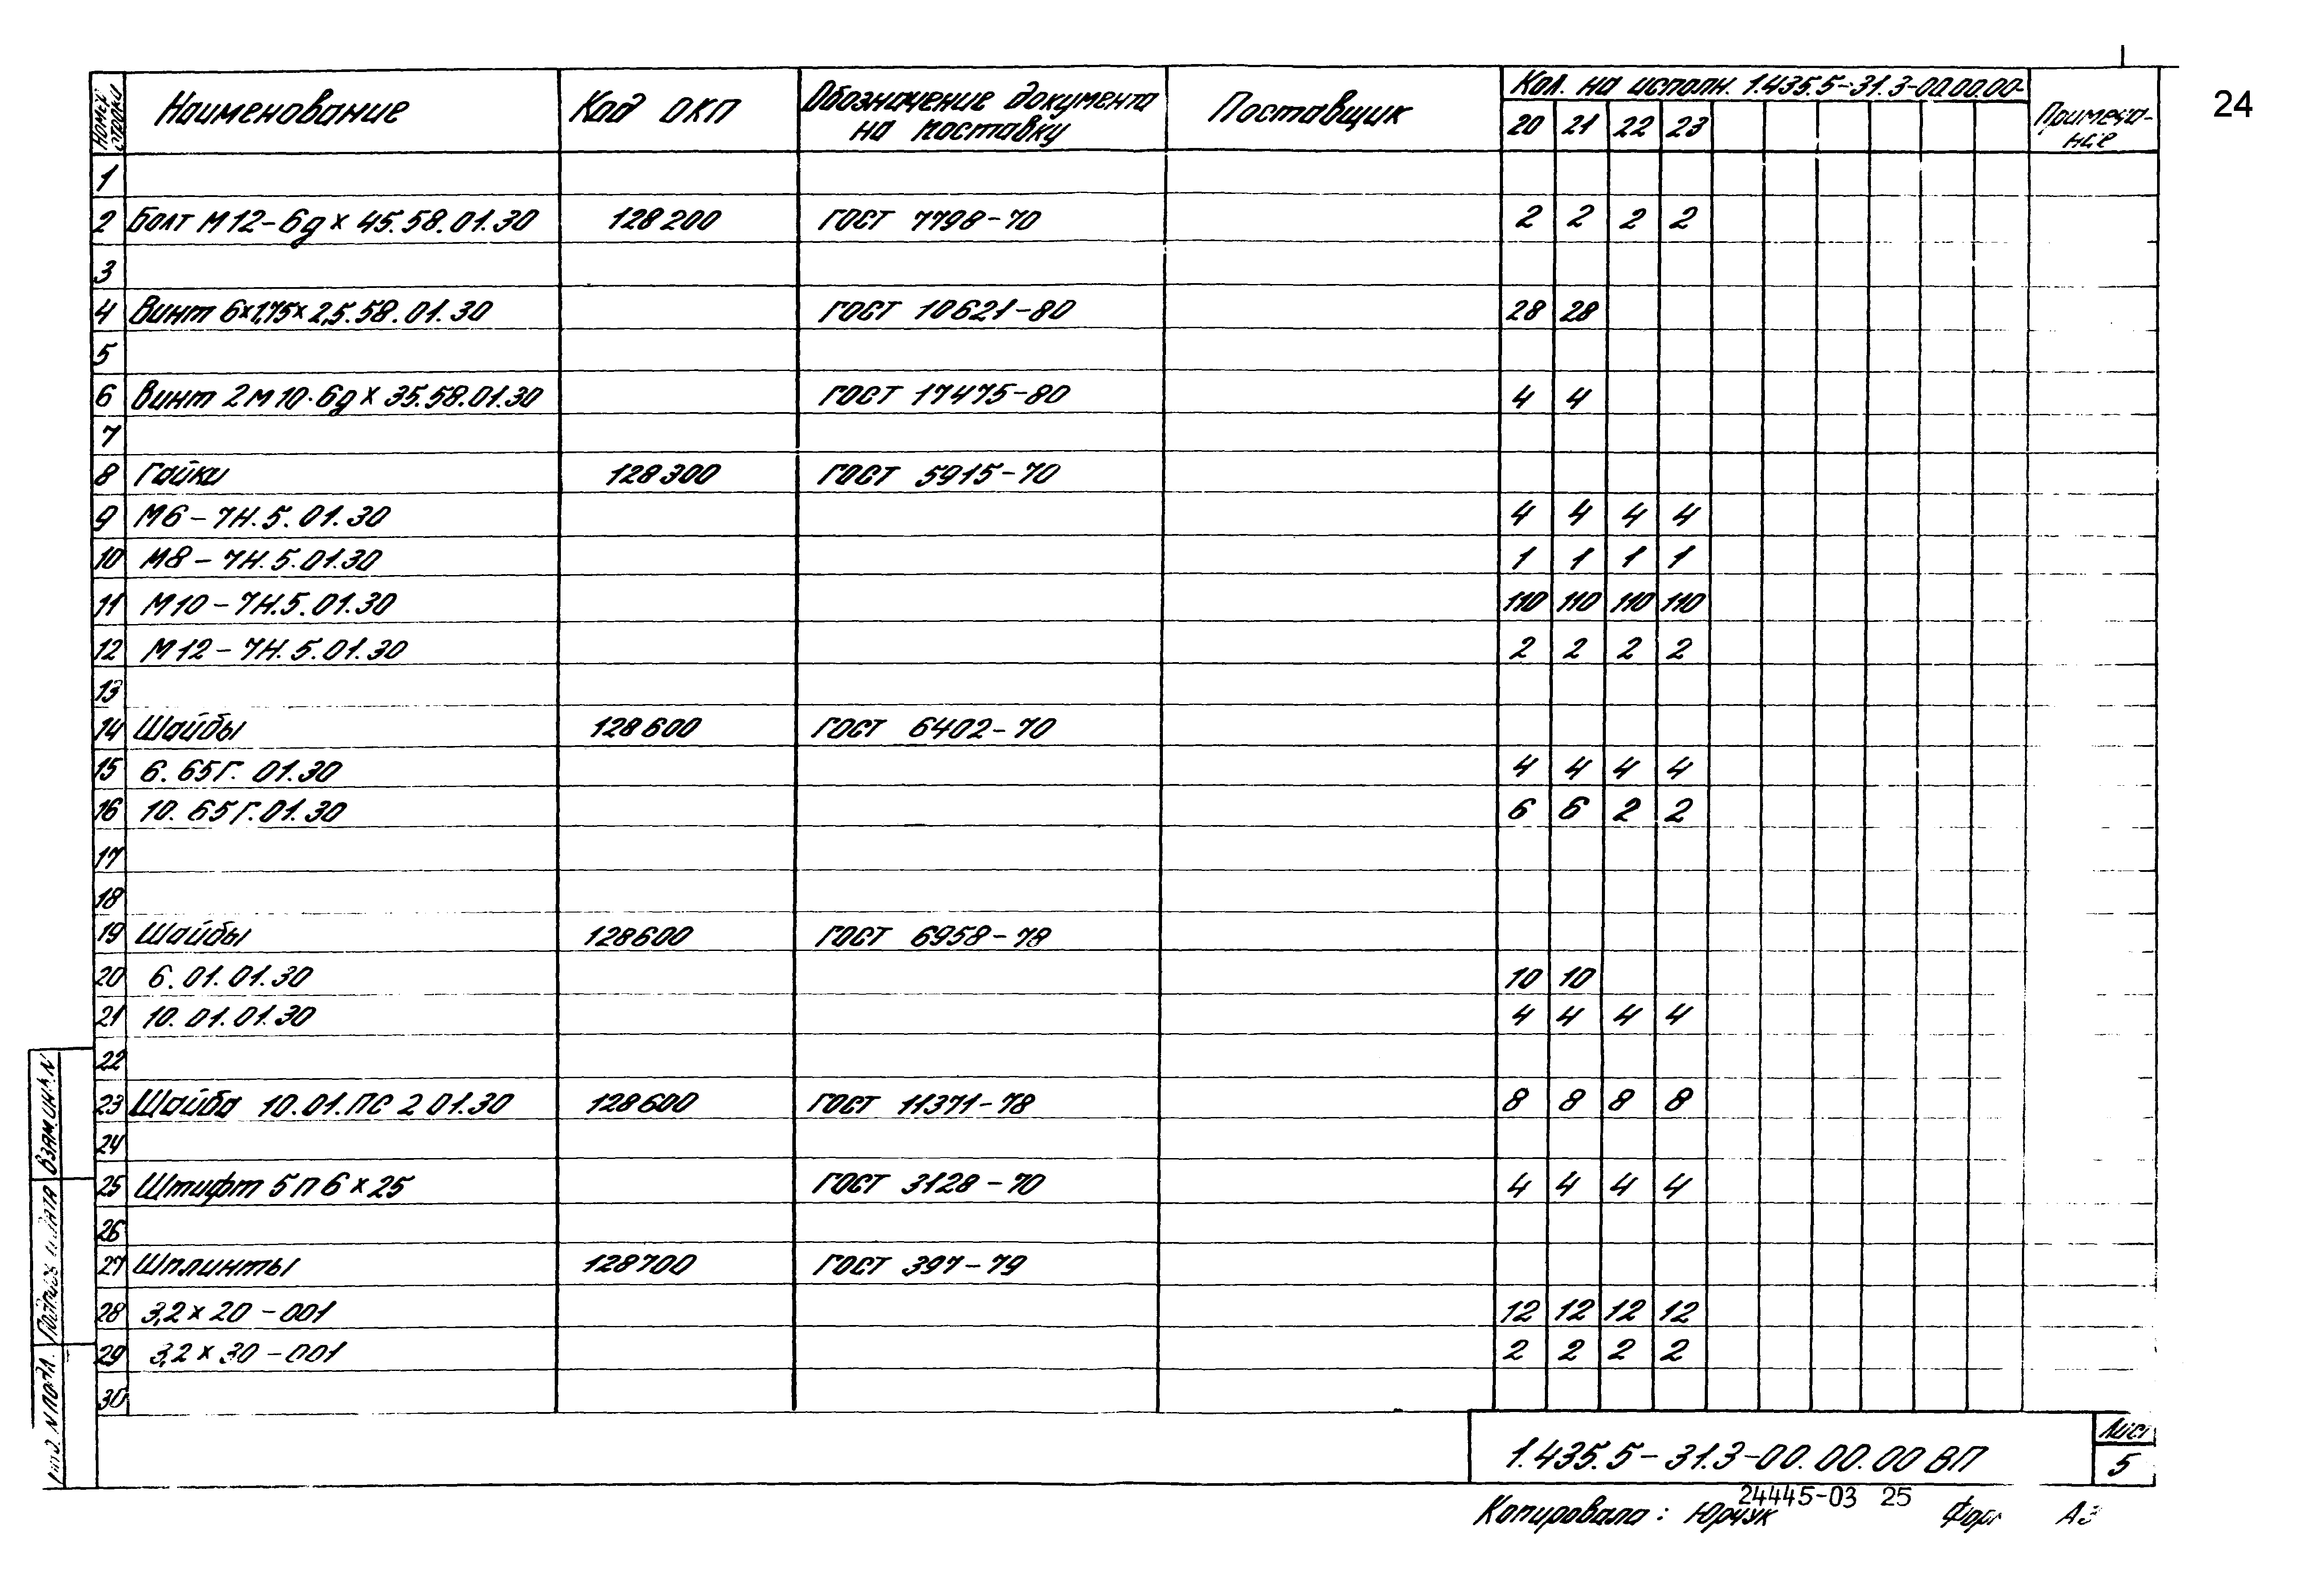 24
Номер строки Наименование Код ОКП Обозначение документа на поставку Поставщик Кол. на исполн. 1.435.5-31.3-00.00.00- Примечание
20 21 22 23
1
2 Болт М12-6gх45.58.01.30 128200 ГОСТ 7798-70 2 2 2 2
3
4 Винт 6х1,75х2,5.58.01.30 ГОСТ 10621-80 28 28
5
6 Винт 2М10-6gх35.58.01.30 ГОСТ 17475-80 4 4
7
8 Гайки 128300 ГОСТ 5915-70
9 М6-7Н.5.01.30 4 4 4 4
10 М8-7Н.5.01.30 1 1 1 1
11 М10-7Н.5.01.30 110 110 110 110
12 М12-7Н.5.01.30 2 2 2 2
13
14 Шайбы 128600 ГОСТ 6402-70
15 6.65Г.01.30 4 4 4 4
16 10.65Г.01.30 6 6 2 2
17
18
19 Шайбы 128600 ГОСТ 6958-78
20 6.01.01.30 10 10
21 10.01.01.30 4 4 4 4
22
23 Шайба 10.01.ПС 2 01.30 128600 ГОСТ 11371-78 8 8 8 8
24
25 Штифт 5п6х25 ГОСТ 3128-70 4 4 4 4
26
27 Шплинты 128700 ГОСТ 397-79
28 3,2х20-001 12 12 12 12
29 3,2х30-001 2 2 2 2
30
ВЗАМ.ИНВ.N
Подпись и дата
Инв. N подл.
1.435.5-31.3-00.00.00 ВП
Лист
5
24445-03 25
Копировала: Юрчук А3